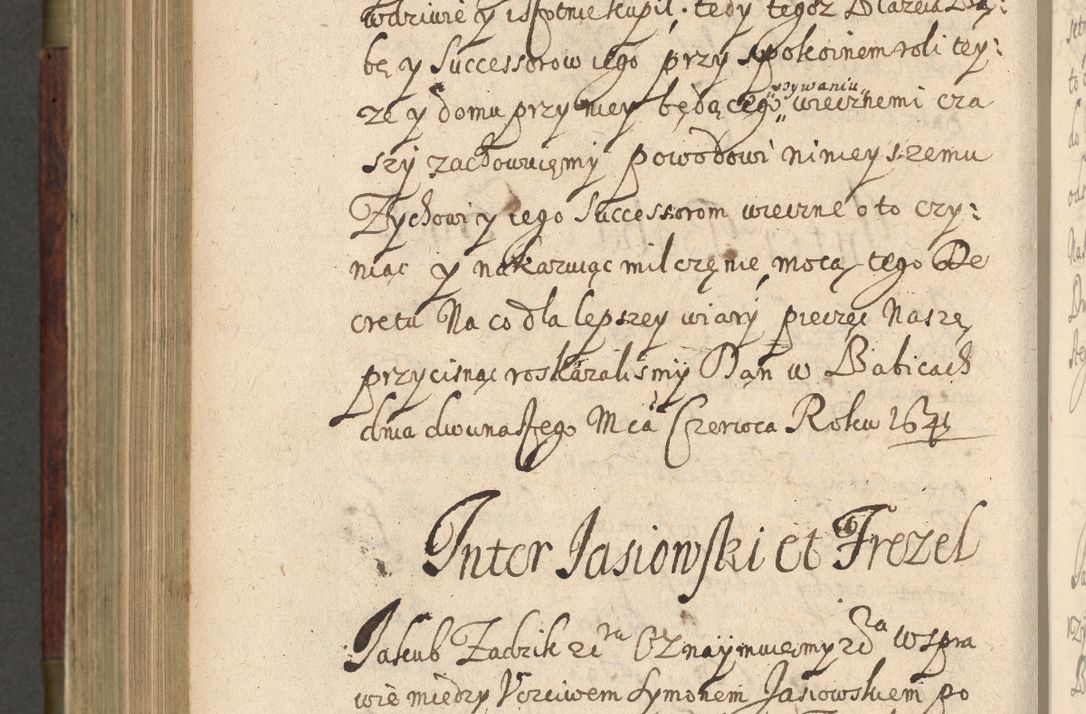 wdziwie y istotnie kupił, tedy tegoż Błażeia Ba:
bę y Successorow iego przy spokoinem roli tey:
że y domu przy niey będącego używaniu wiecznemi cza
szy zachowuięmy powodowi ninieyszemu
Zychowi y iego Successorom wieczne o to czy:
niąc y nakazuiąc milczęnie mocą tego De
cretu Na co dla lepszey wiary pieczęć Naszę
przycisnąc roskazalismy Dan w Babicach
dnia dwunastego Mca Czerwca Roku 1641
Inter Jasiowski et Frezel
Jakub Zadzik etc Oznaymuięmy etc W spra
wie między Vczciwem Symonem Jasiowskiem po